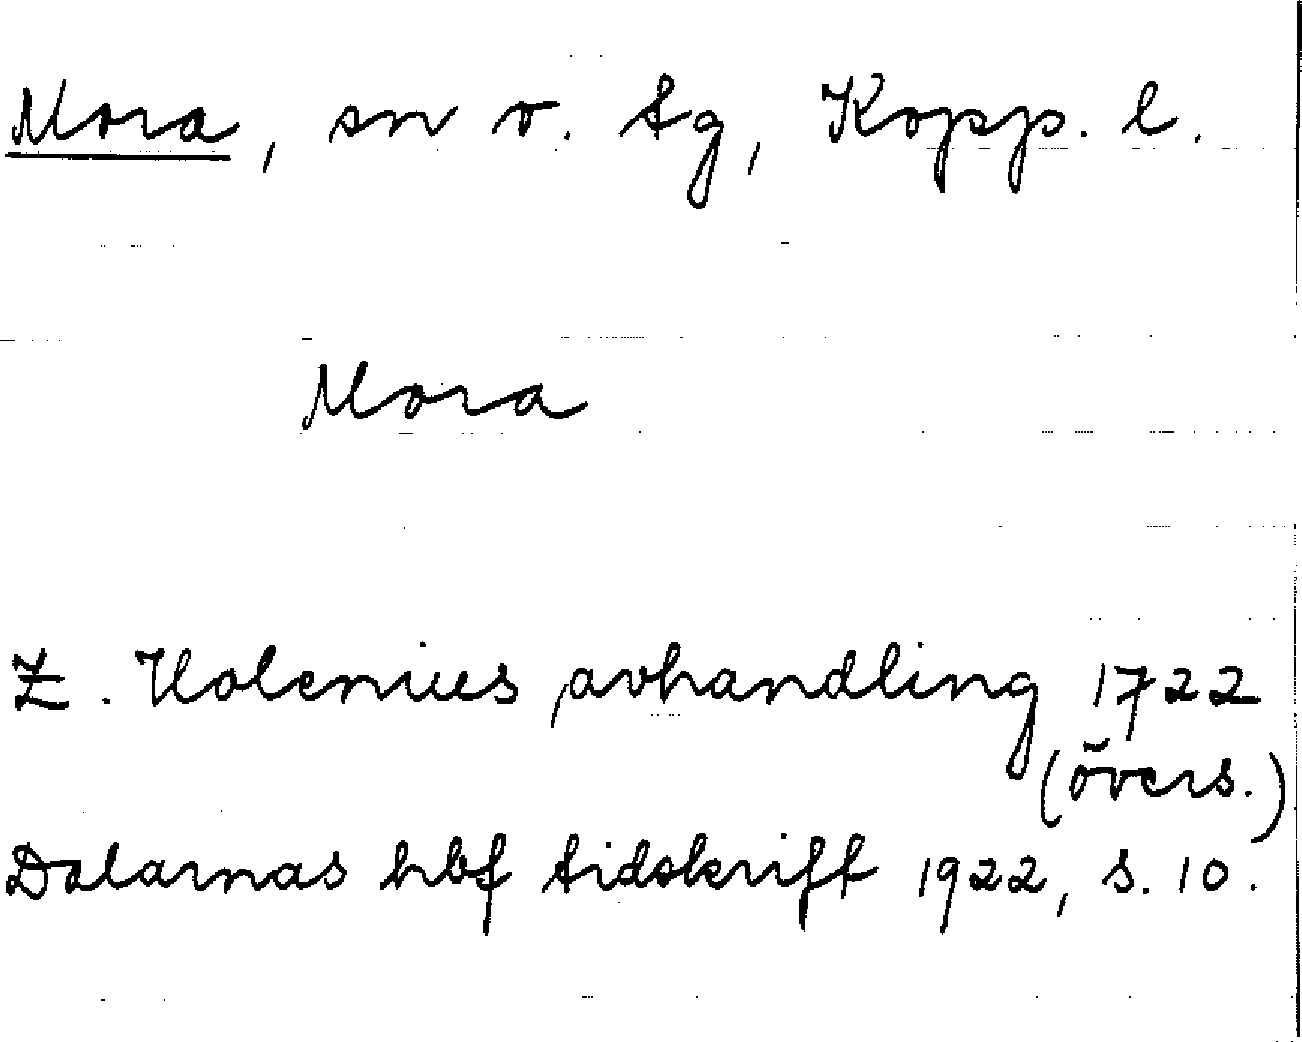 Mora, sn o. tg, Kopp. l.
Mora
Z. Holenius avhandling 1722
(övers.)
Dalarnas hbf tidskrift 1922, s. 10.